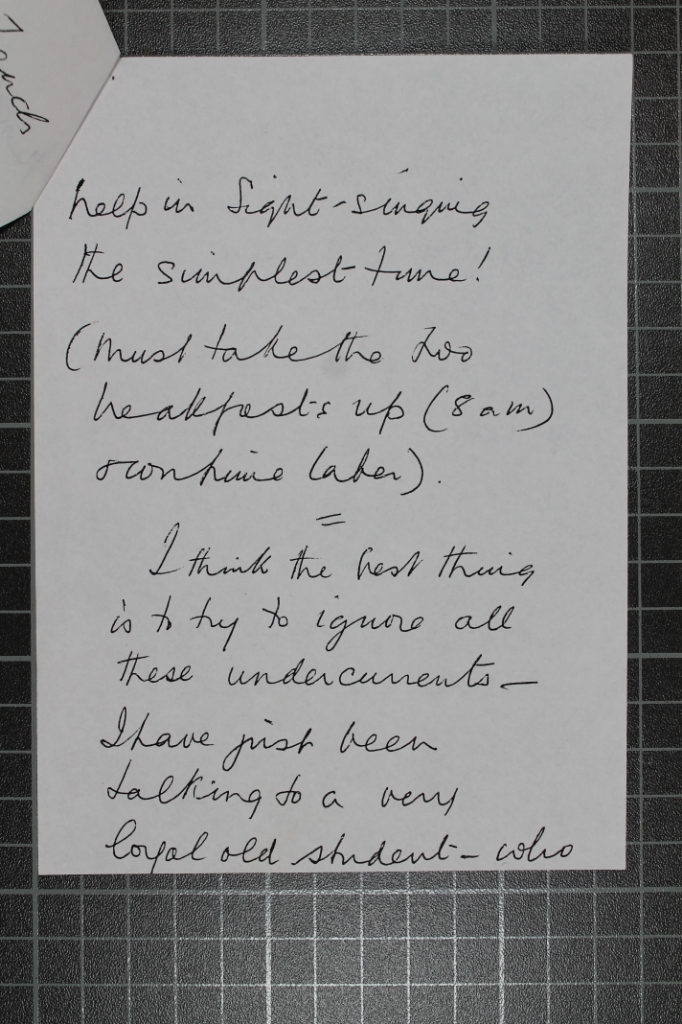 Tench
help in Sight-singing
the simplest tune!
(Must take the two
breakfasts up (8 am)
& continue later).
=
I think the best thing
is to try to ignore all
these undercurrents —
I have just been
talking to a very
loyal old student – who